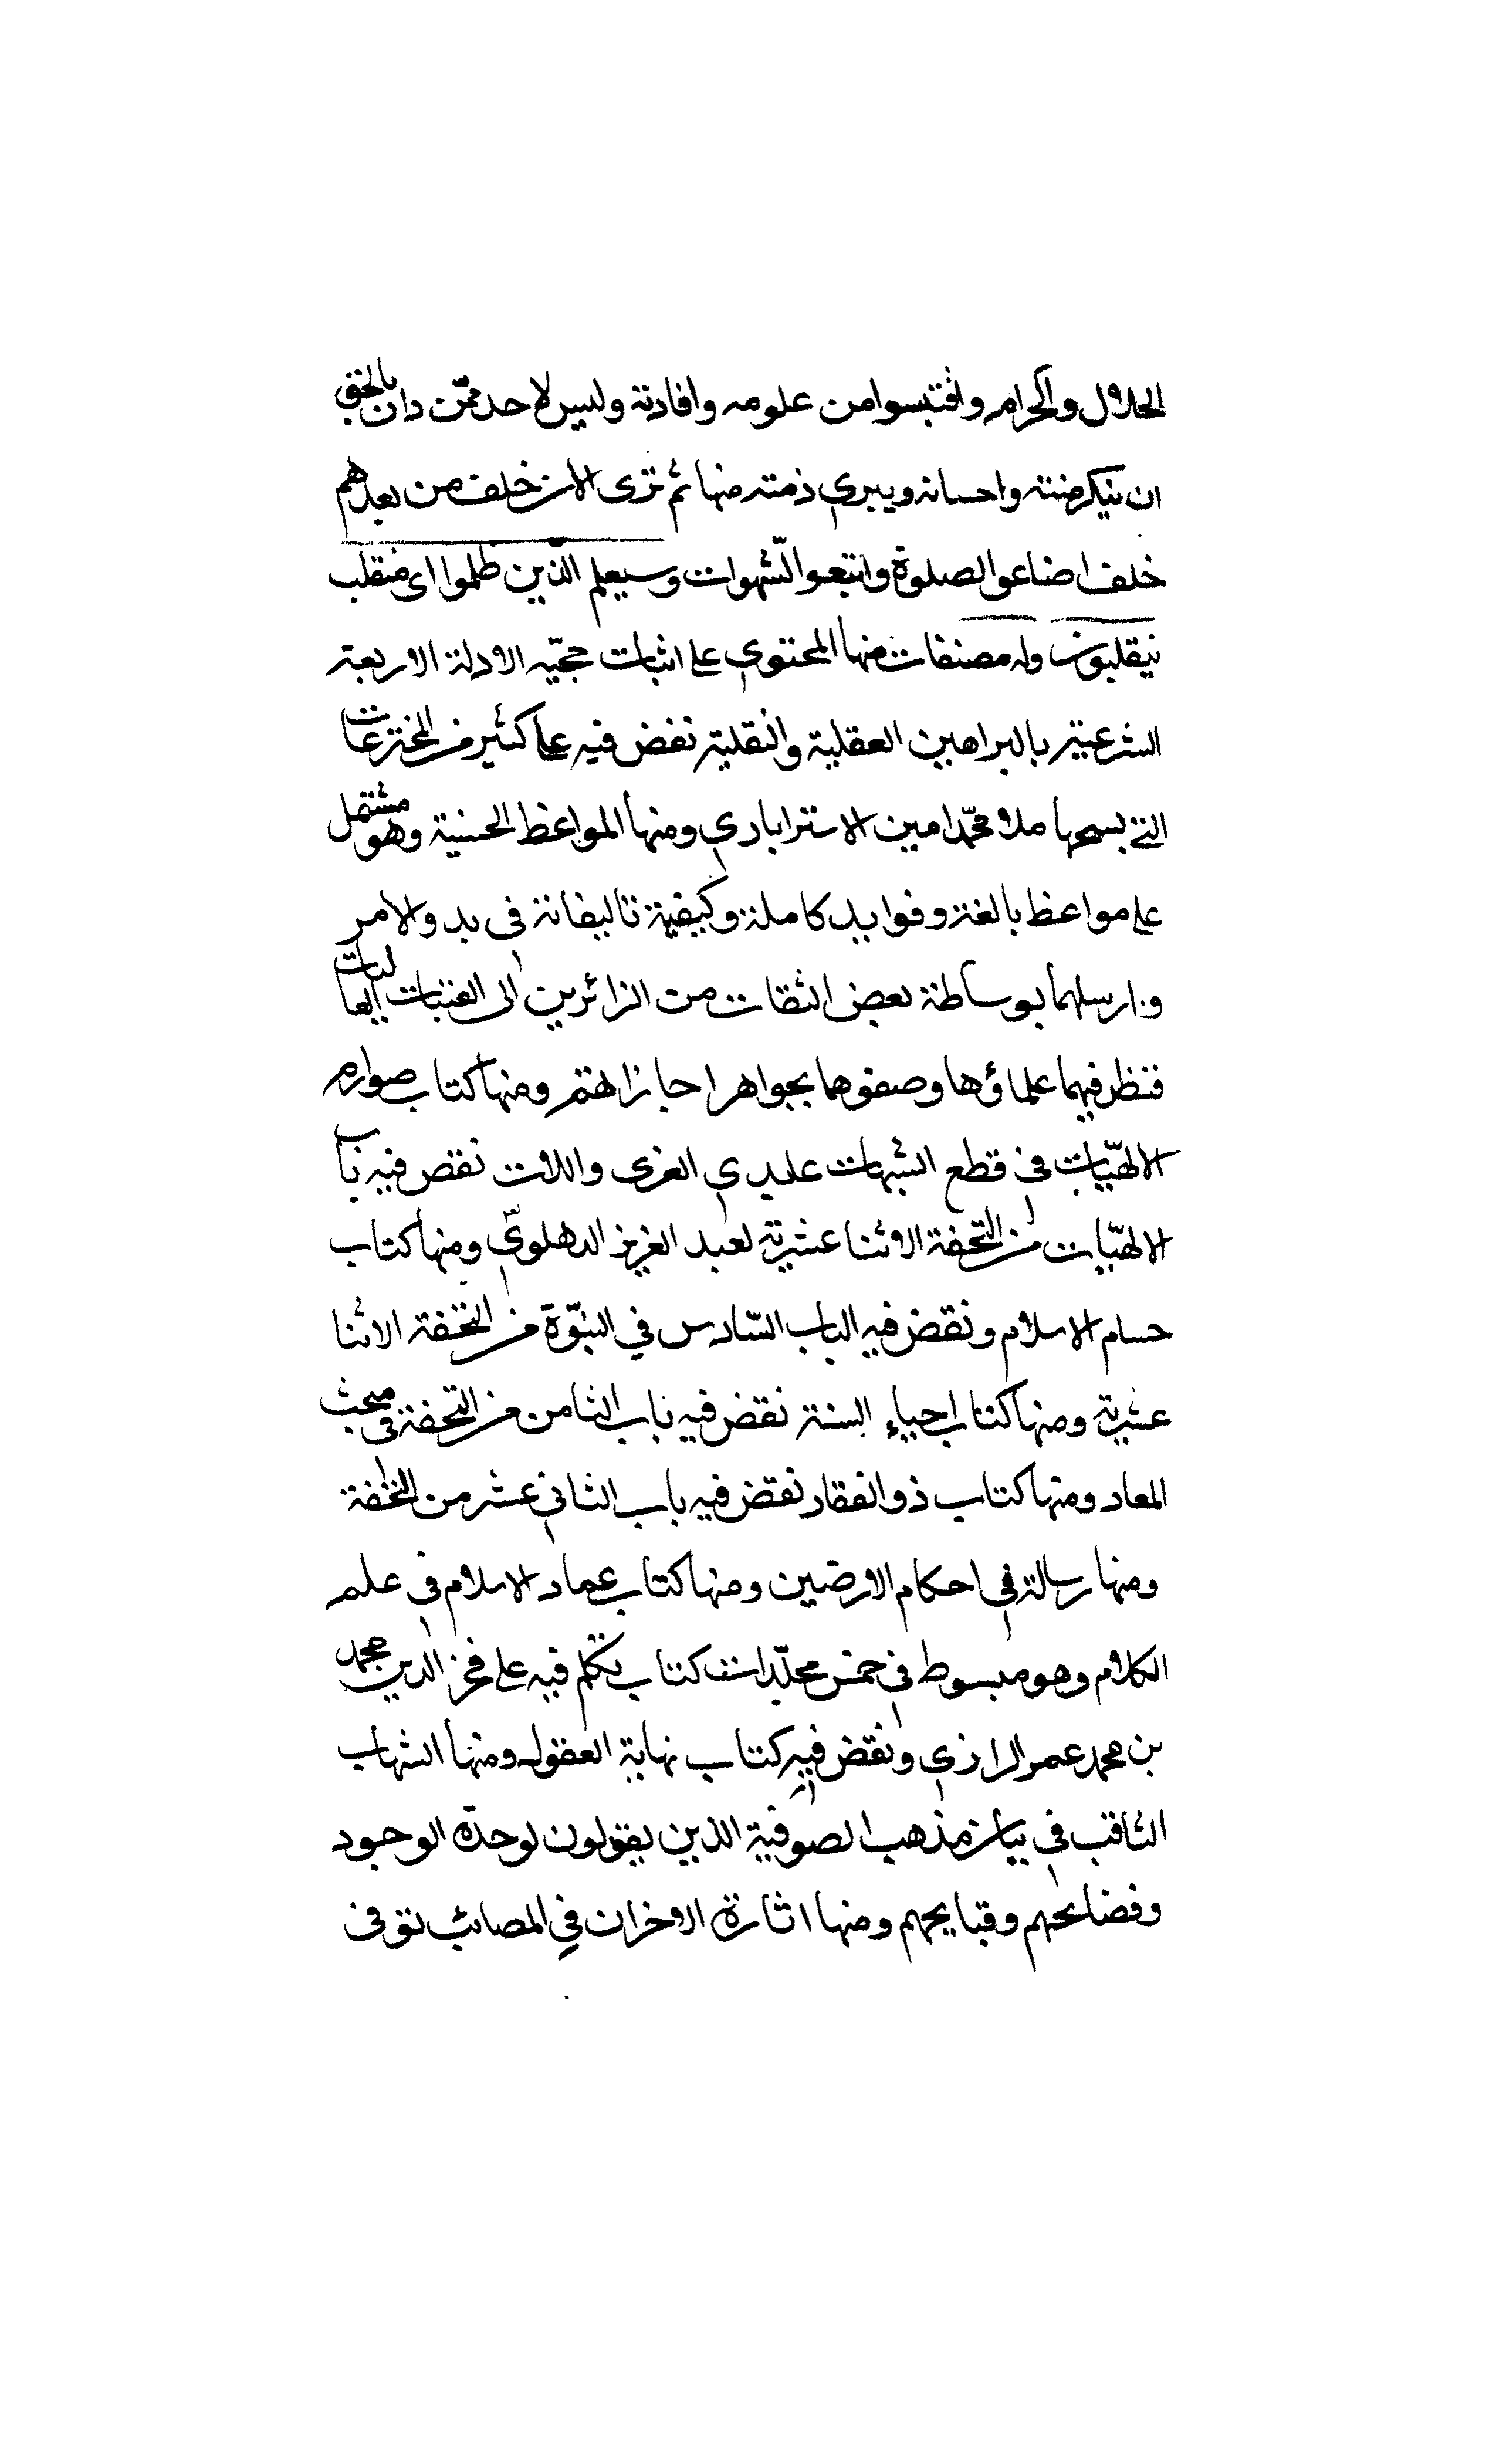 الحلال والحرام واقتبسوا من علومه وافادته وليس لاحد ممّن دان بالحق
ان ينكر منته واحسانه ويبرى ذمته منها ثم ترى الان خلف من بعدهم
خلف اضاعوا الصلوة واتبعوا الشّهوات وسيعلم الّذين ظلموا اى منقلب
ينقلبون وله مصنفات منها المحتوى على اثبات حجّيه الادلة الاربعة
الشرعية بالبراهين العقلية والنقلية نقض فيه على كثير من المخترعات
التى ملا محمّد امين الاسترابادى ومنها المواعظ الحسنية وهو مشتمل
على مواعظ بالغة وفوايد كاملة وكيفية تاليفاته فى بدو الامر
وارسلهما بوساطة بعض الثقات من الزائرين الى العتبات العاليات
فنظر فيهما علماؤها وصفوهما بجواهر اجازاهتم ومنها كتاب صوارم
الالهيّات فى قطع الشبهات عابدى العزى واللات نقض فيه باب
الالهيّات من التحفة الاثنا عشرية لعبد العزيز الدهلوىّ ومنها كتاب
حسام الاسلام ونقض فيه الباب السّادس في النبّوة من التحفة الاثنا
عشرية ومنها كتاب احياء السنة نقض فيه باب الثامن من التحفة فى مبحث
المعاد ومنها كتاب ذوالفقار نقض فيه باب الثانى عشر من التحفة
ومنها رسالة فى احكام الارضين ومنها كتاب عماد الاسلام فى علم
الكلام وهو مبسوط فى خمس مجلّدات كتاب تكلم فيه على فخر الدين محمد
بن محمد عمر الرازى ونقض فيه كتاب نهاية العقول ومنها الشهاب
الثاقب فى بيان مذهب الصوفية الذين يقولون لوحدة الوجود
وفضائحهم وقبايحهم ومنها اثارة الاخزان في المصائب توفى